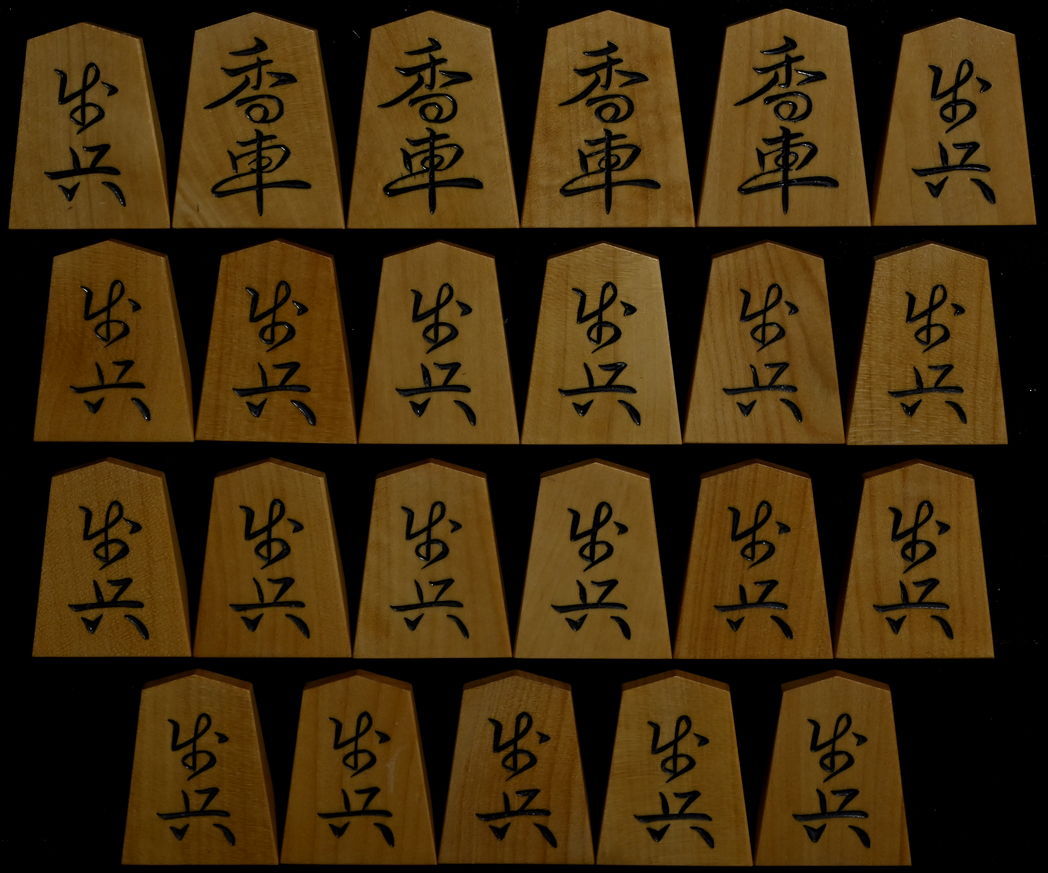 歩兵 香車 香車 香車 香車 歩兵
歩兵 歩兵 歩兵 歩兵 歩兵 歩兵
歩兵 歩兵 歩兵 歩兵 歩兵 歩兵
歩兵 歩兵 歩兵 歩兵 歩兵